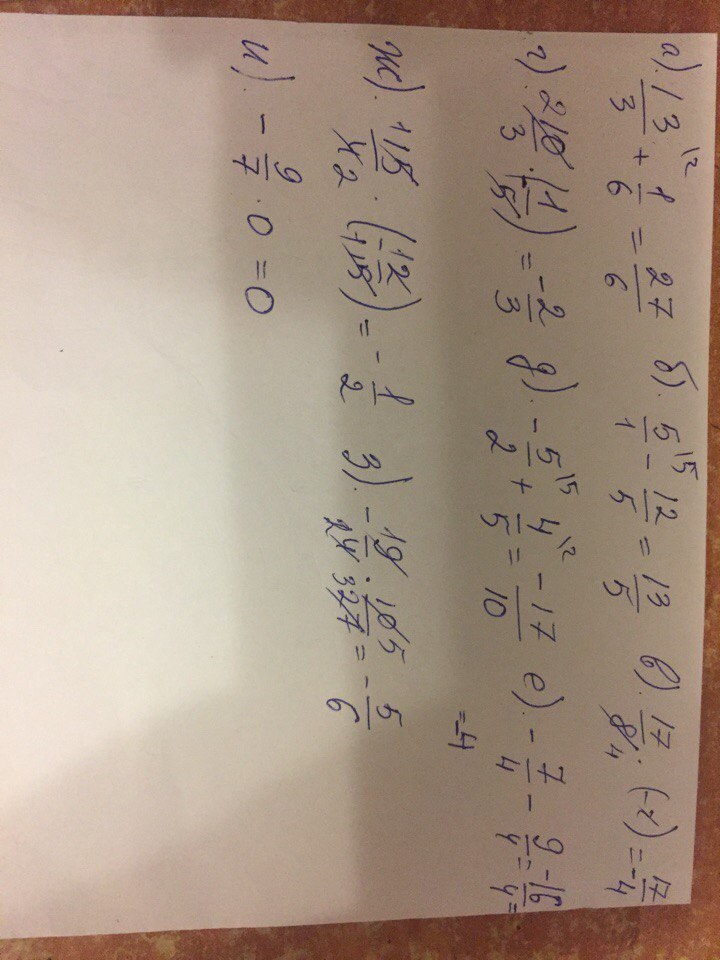 а). 13/3 ^{12} + 1/6 = 27/6 б). 5/1 ^{15} - 12/5 = 13/5 в). 17/8 4 · (-2) = -17/4
г). 2 10/3 · (-1/5) = -2/3 д). -5/2 ^{15} + 4/5 ^{12} = -17/10 е). -7/4 - 9/4 = -16/4 =
= -4
ж). 1 15/4 2 · (-12/1 15) = -1/2 з). -1 9/24 · 10 5/3 27 = -5/6
и). -9/7 · 0 = 0